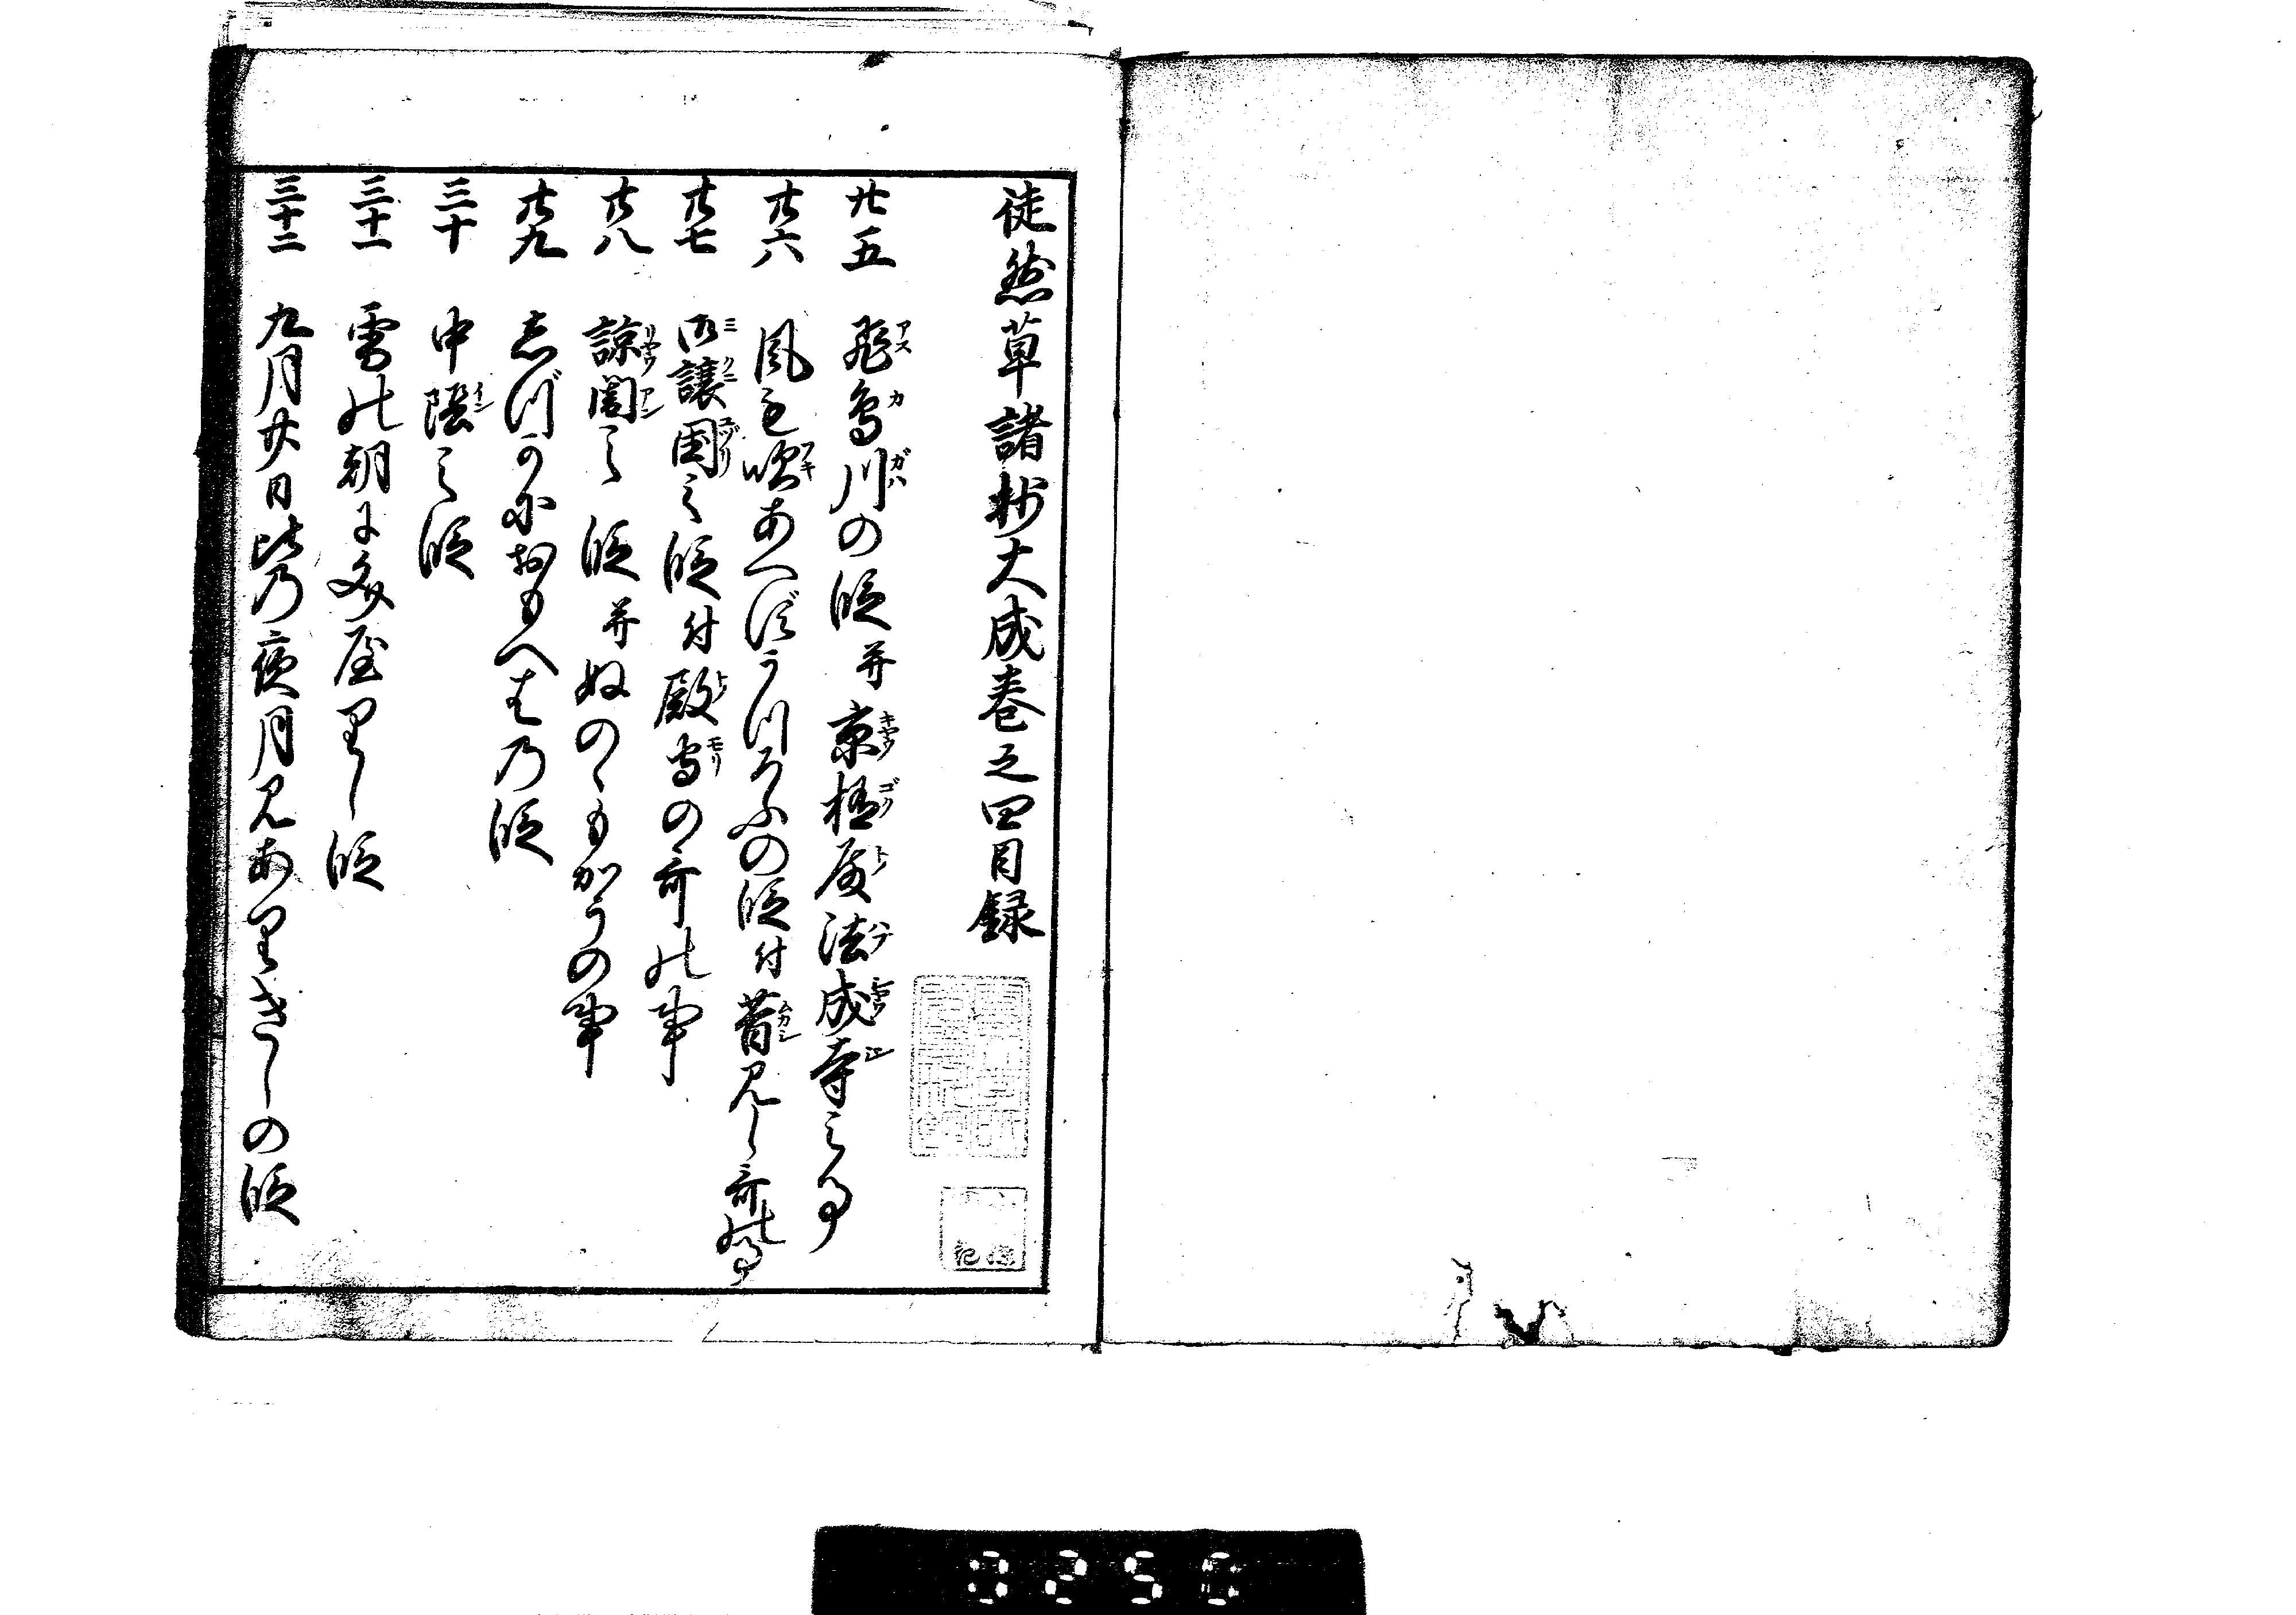 徒然草諸抄大成巻之四目録
廿五 飛鳥川の段 并 京極殿法成寺之事
廿六 風も吹あへずうつろふの段 付 昔見し哥の事
廿七 御譲国之段 付 殿守の哥の事
廿八 諒闇之段 并 ぬのゝもかうの事
廿九 しづかにおもへはの段
三十 中陰之段
三十一 雪の朝に文やりし段
三十二 九月廿日比の夜月見ありきしの段
0256